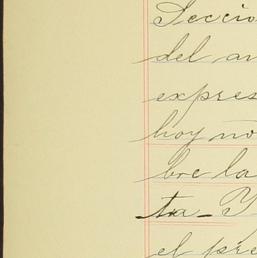 Seccio
del an
expres
hoy no
bre la
ta - Y
el pre